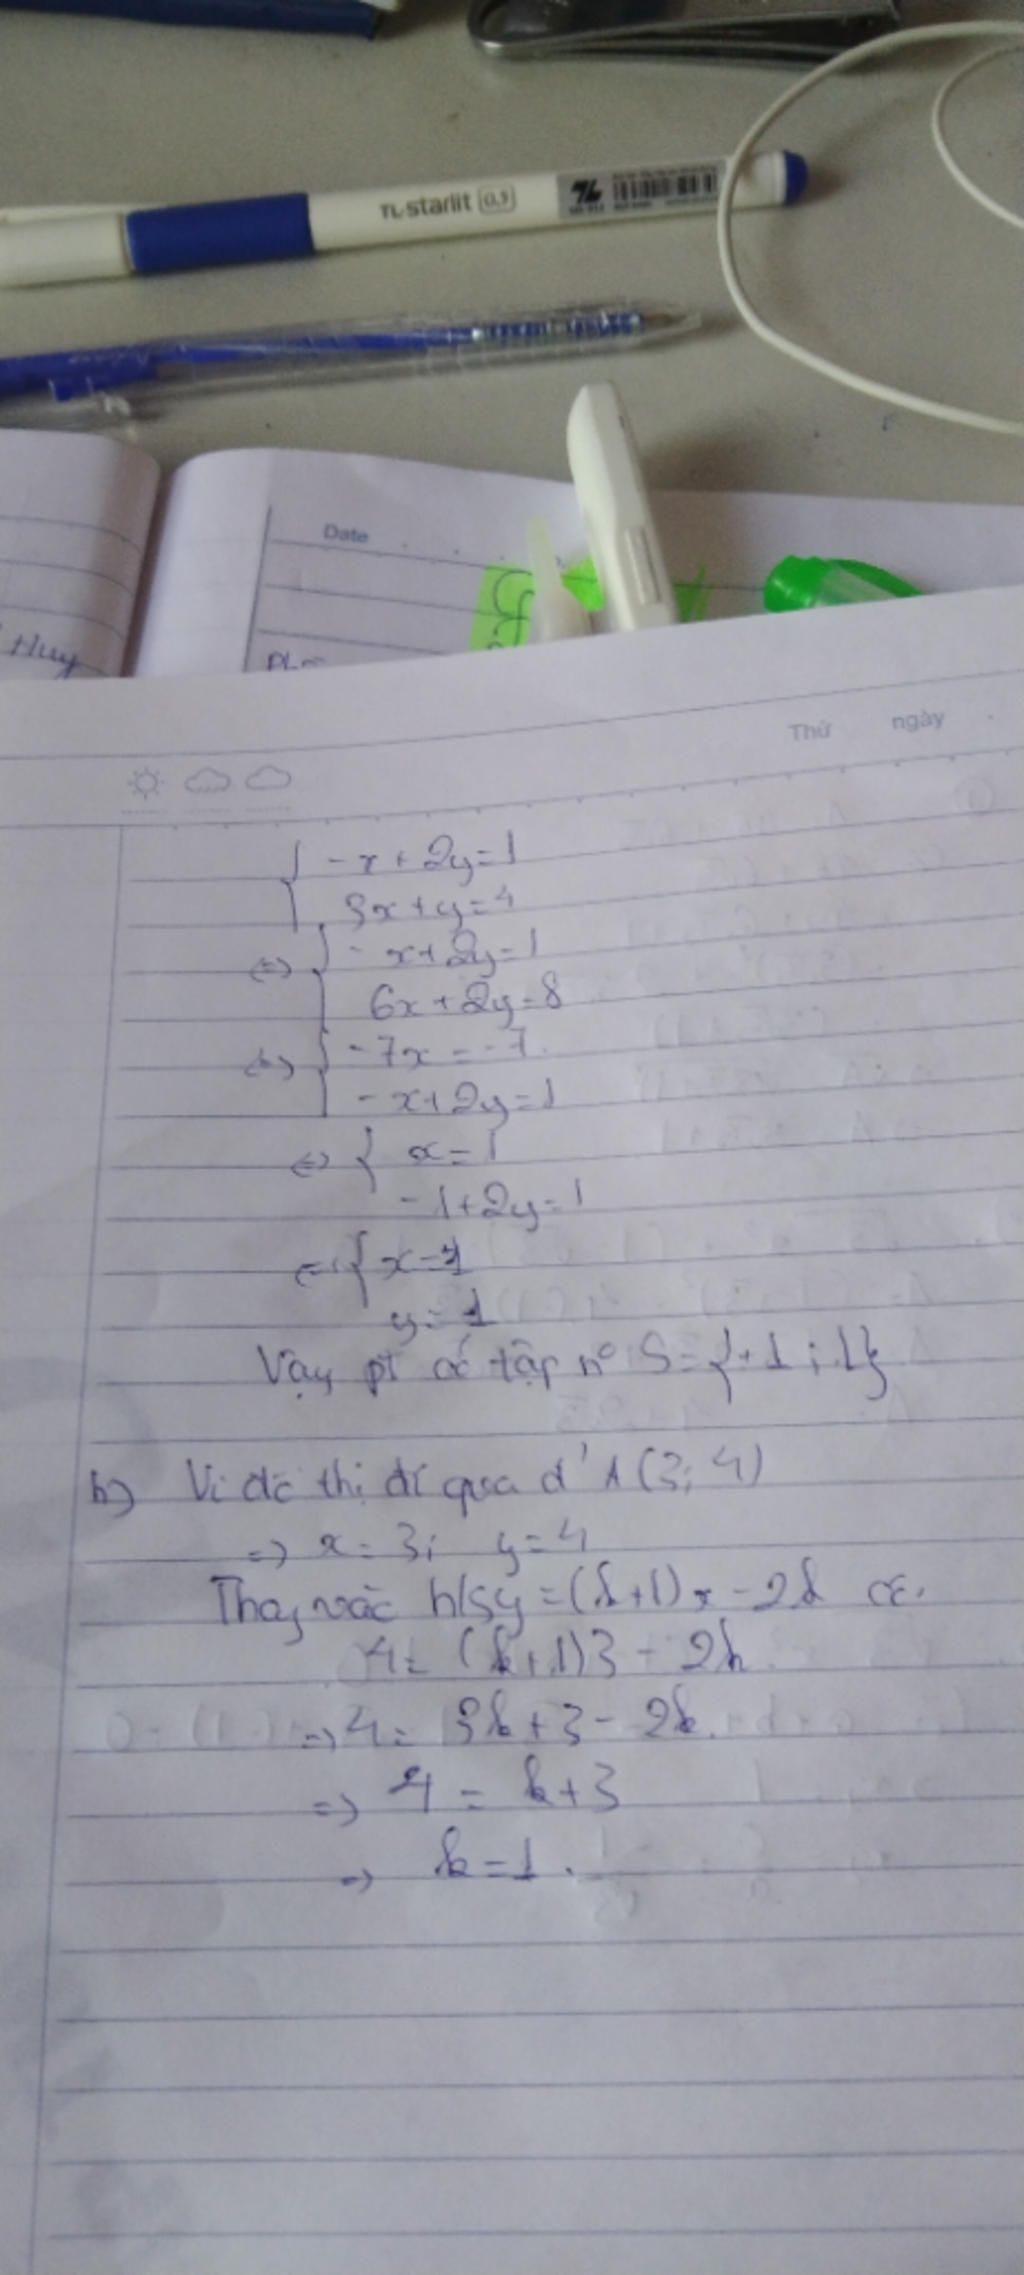 TL-starlit 0.5
Date
Huy
Thứ ngày
-x + 2y = 1
3x + y = 4
<=> -x + 2y = 1
6x + 2y = 8
<=> -7x = -7.
-x + 2y = 1
<=> { x = 1
-1 + 2y = 1
<=> { x = 1
y = 1
Vậy pt có tập n⁰ S = {+1; 1}
b) Vì đồ thị đi qua đ' A (3; 4)
=> x = 3; y = 4
Thay vào h/s y = (k+1)x - 2k có.
4 = (k+1)3 - 2k
=> 4 = 3k + 3 - 2k.
=> 4 = k + 3
=> k = 1.